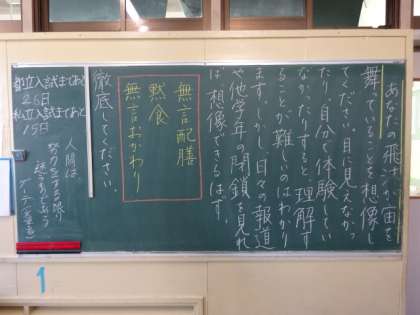 あなたの飛ばシブキが宙を
舞っていることを想像し
てください。目に見えなかっ
たり、自分で体験してい
なかったりすると、理解す
ることが難しいのはわかり
ます。しかし、日々の報道
や他学年の閉鎖を見れ
ば、想像できるはず。
無言配膳
黙食
無言おかわり
徹底してください。
都立入試まであと
26日
私立入試まであと
15日
人間は
努力をする限り
迷うものだ
ゲーテ
1